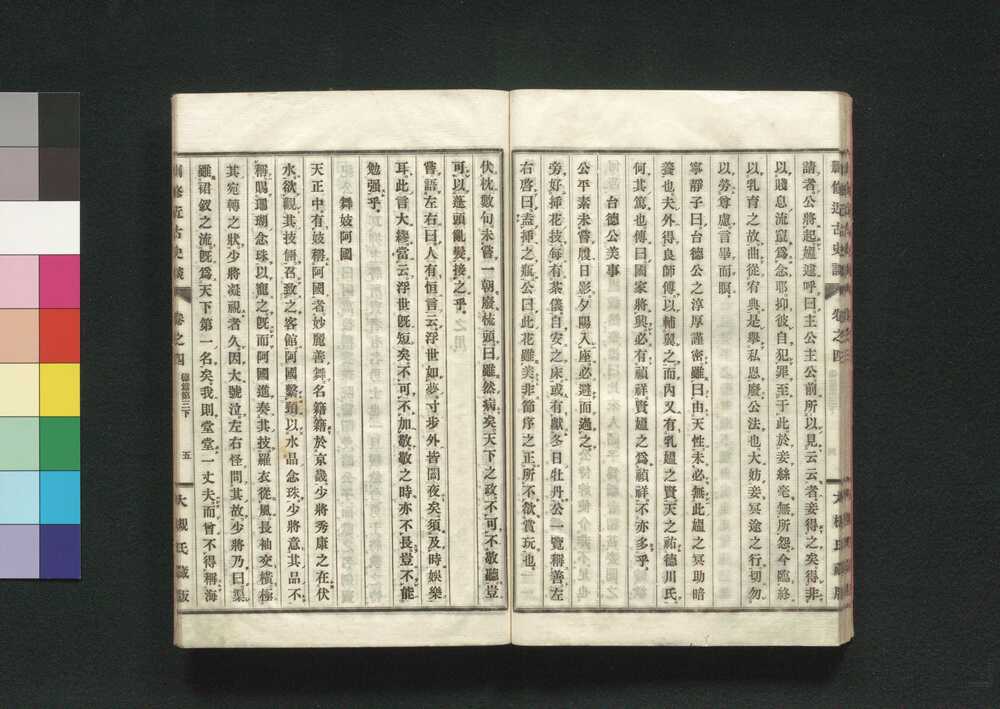 請者公將起媼遽呼曰主公主公前所以見云云者妾得之矣得非
以賤息流竄爲念耶抑彼自犯罪至于此於妾絲毫無所怨今臨終
以乳育之故曲從宥典是擧私恩廢公法也大妨妾冥途之行切勿
以勞尊慮言畢而瞑
寧靜子曰台德公之淳厚謹密雖曰由天性未必無此媼之冥助暗
養也夫外得良師傅以輔翼之而內又有乳媼之賢天之祐德川氏
何其篤也傳曰國家將興必有禎祥賢媼之爲禎祥不亦多乎
台德公美事
公平素未嘗履日影夕陽入座必避而過之
旁好挿花技每有茶儀自安之床或有獻冬日牡丹公一覽稱善左
右啓曰盍挿之瓶公曰此花雖美非節序之正所不欲賞玩也
伏枕數旬未嘗一朝廢梳頭曰雖然病矣天下之政不可不敬聽豈
可以蓬頭亂髮接之乎
嘗語左右曰人有恒言云浮世如夢寸步外皆闇夜矣須及時娛樂
耳此言大繆當云浮世旣短矣不可不加敬敬之時亦不長豈不能
勉强乎
舞妓阿國
天正中有妓稱阿國者妙麗善舞名籍籍於京畿少將秀康之在伏
水欲觀其技餙召致之客館阿國繫頸以水晶念珠少將意其品不
稱賜珊瑚念珠以寵之旣而阿國進奏其技羅衣從風長袖交橫極
其宛轉之狀少將凝視者久因大號泣左右怪問其故少將乃曰渠
雖裙釵之流旣爲天下第一名矣我則堂堂一丈夫而曾不得稱海
近古史談 卷之四 德篇第三下 五 大槻氏藏版